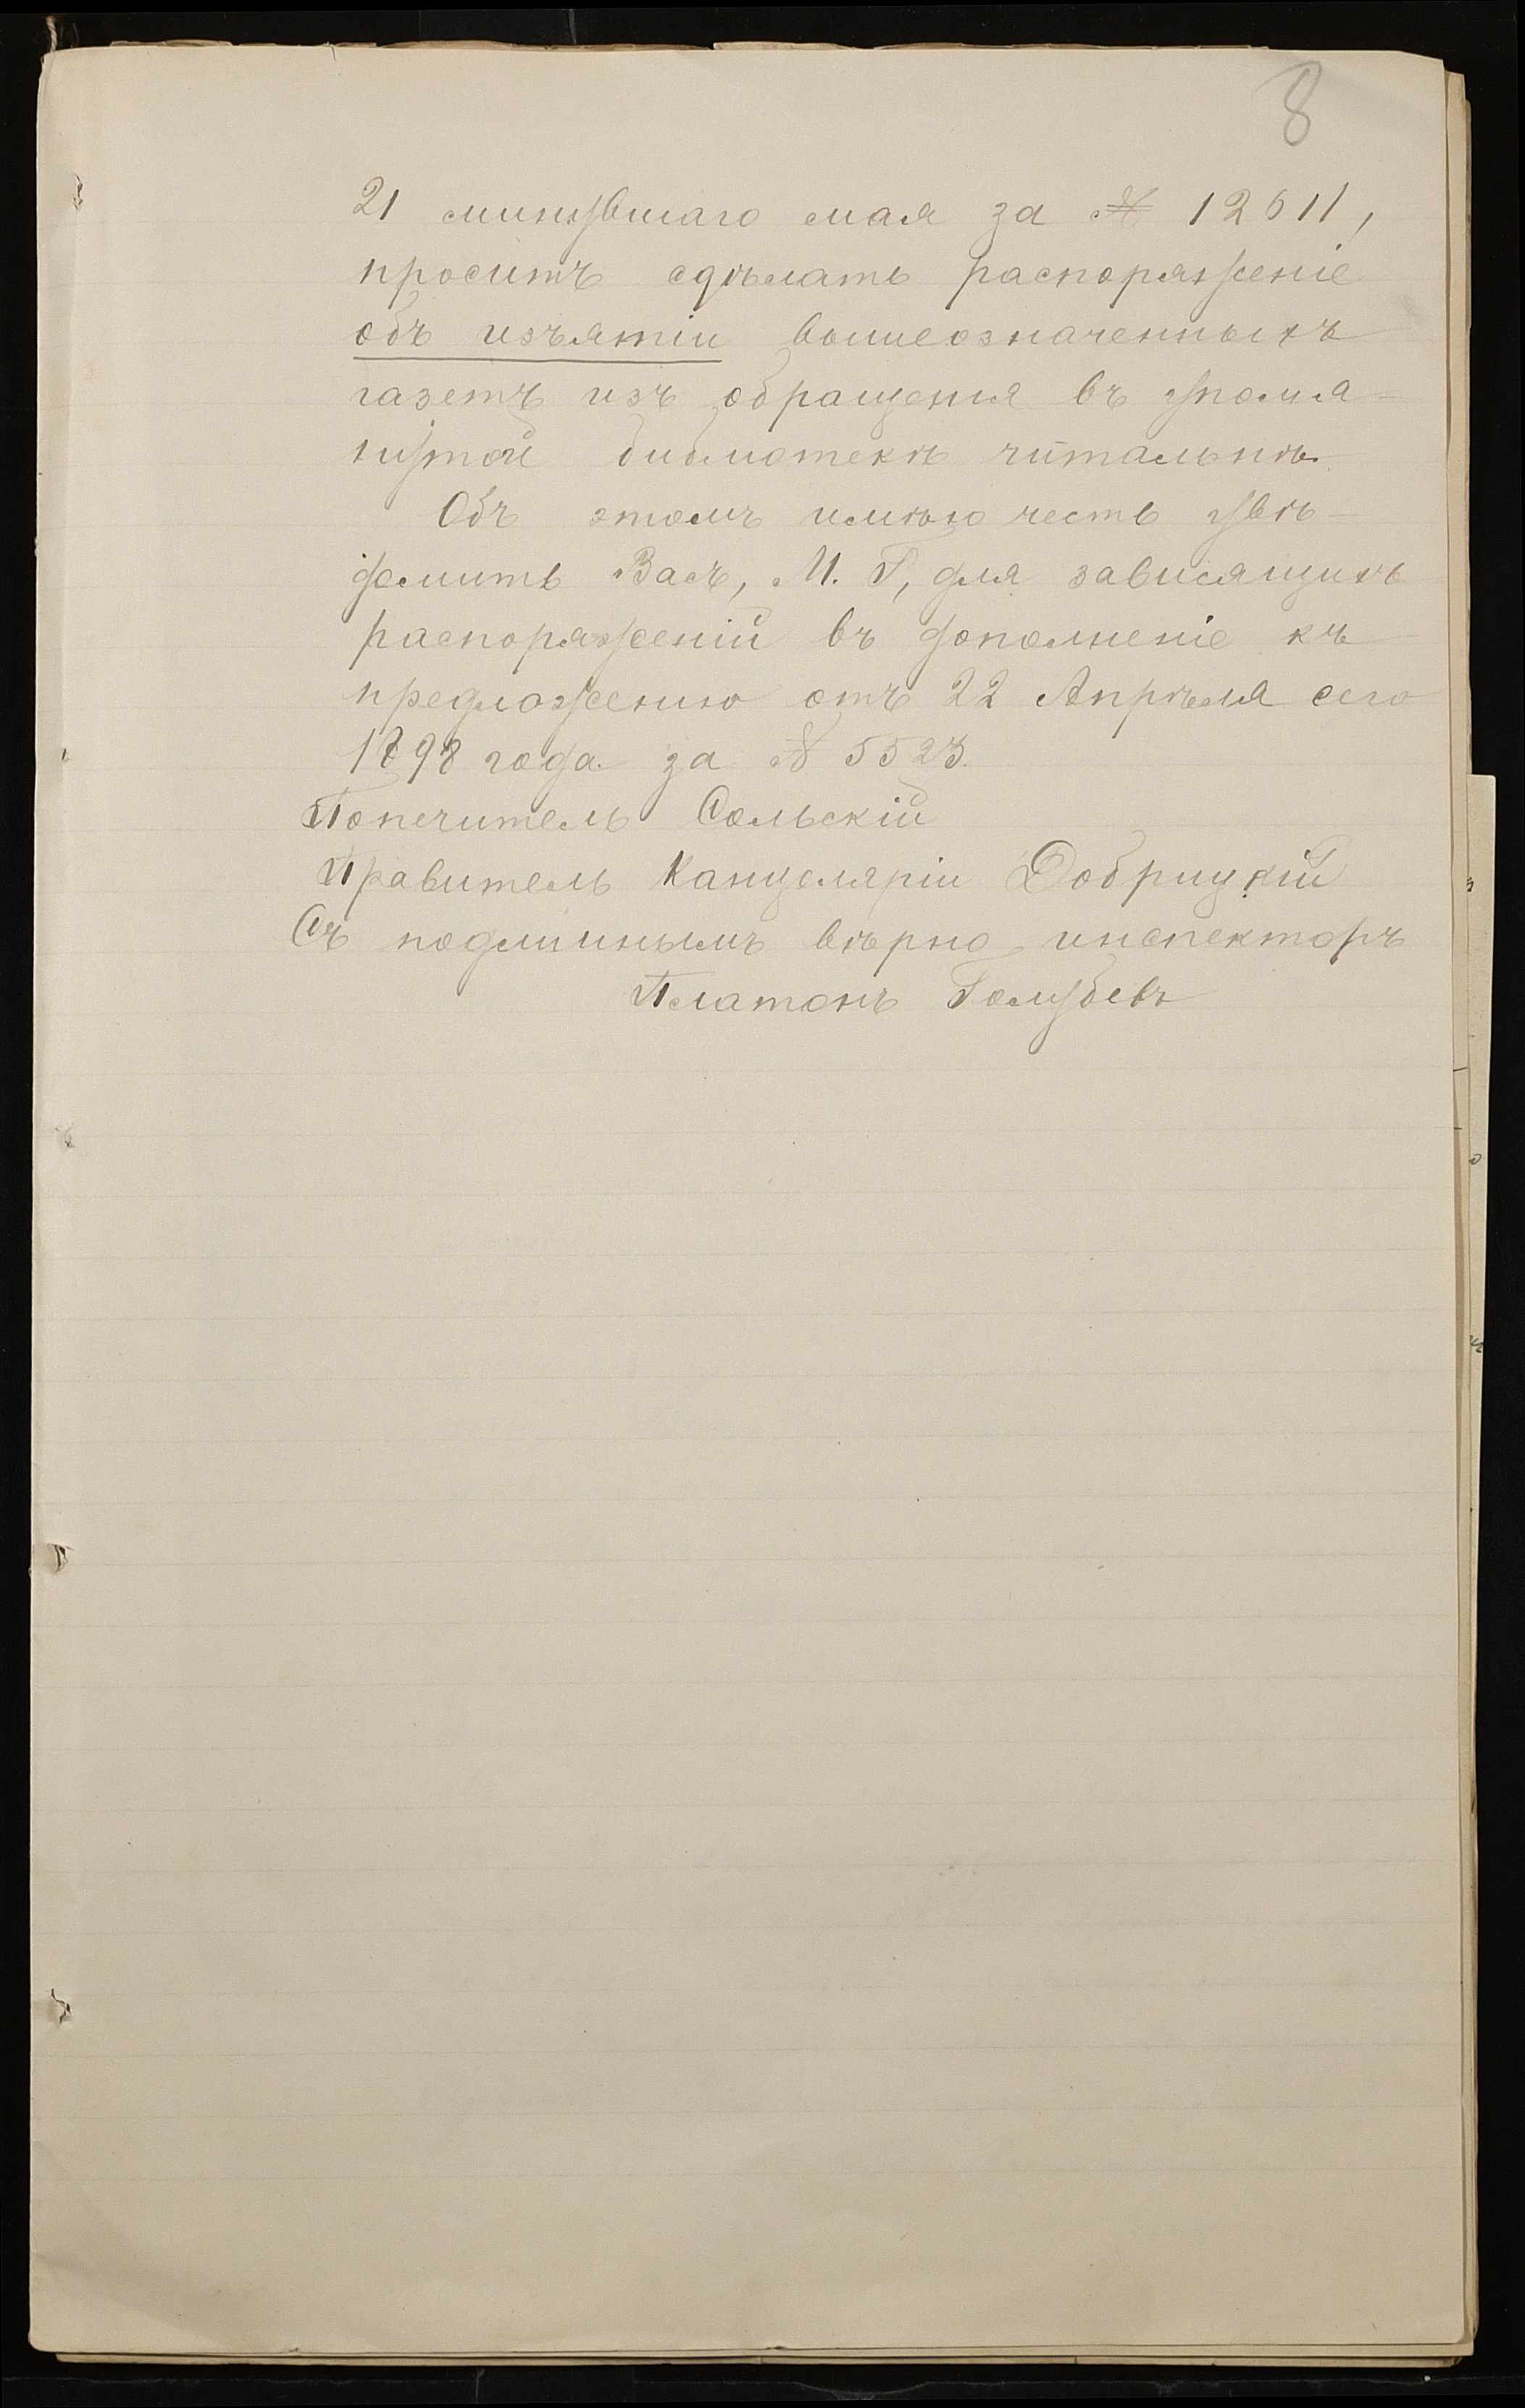 8
21 минувшаго мая за № 12611,
проситъ сдѣлать распоряженіе
объ изъятіи вышеозначенныхъ
газетъ изъ обращенія въ упомя-
нутой библіотекѣ читальнѣ.
Объ этомъ имѣю честь увѣ-
домить Васъ, М. Г., для зависящихъ
распоряженій въ дополненіе къ
предложенію отъ 22 Апрѣля сего
1898 года за № 5523.
Попечитель Сольскій
Правитель Канцеляріи Добрицкій
Съ подлиннымъ вѣрно, инспекторъ
Платонъ Голубевъ